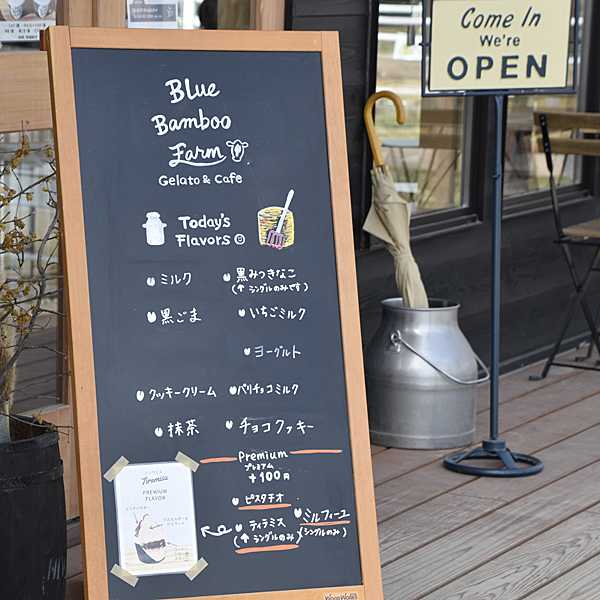 Come In
We're
OPEN
Blue
Bamboo
Farm
Gelato & Cafe
Today's
Flavors
ミルク
黒みつきなこ
(↑ シングルのみです)
黒ごま
いちごミルク
ヨーグルト
クッキークリーム
パリチョコミルク
抹茶
チョコクッキー
Premium
プレミアム
+100円
ピスタチオ
ティラミス
(↑ シングルのみ)
ミルフィーユ
(シングルのみ)
Tiramisu
PREMIUM
FLAVOR